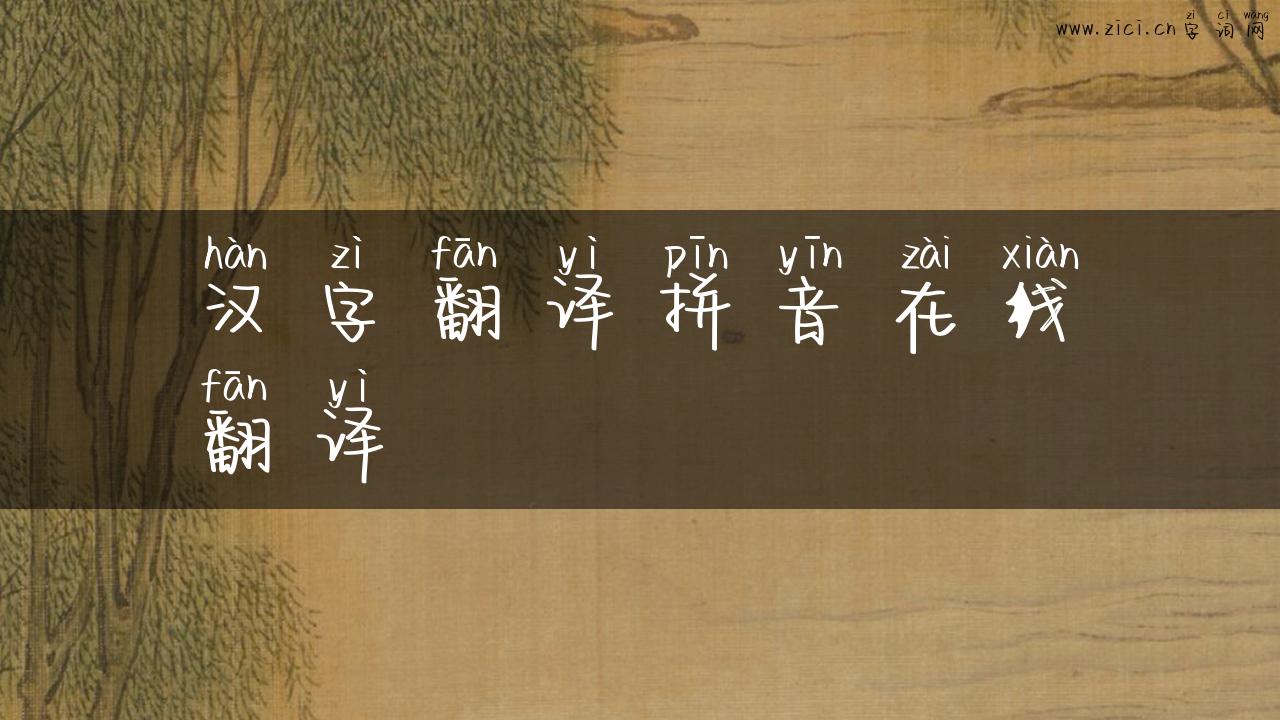 zì cí wǎng
www.zici.cn字词网
hàn zì fān yì pīn yīn zài xiàn
汉字翻译拼音在线
fān yì
翻译